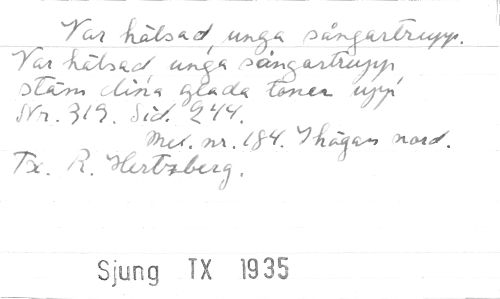 Var hälsad, unga sångartrupp.
Var hälsad unga sångartrupp
stäm dina glada toner upp
Nr. 319. Sid. 244.
Mel. nr. 184. I högan nord.
Tx. R. Hertzberg.
Sjung TX 1935